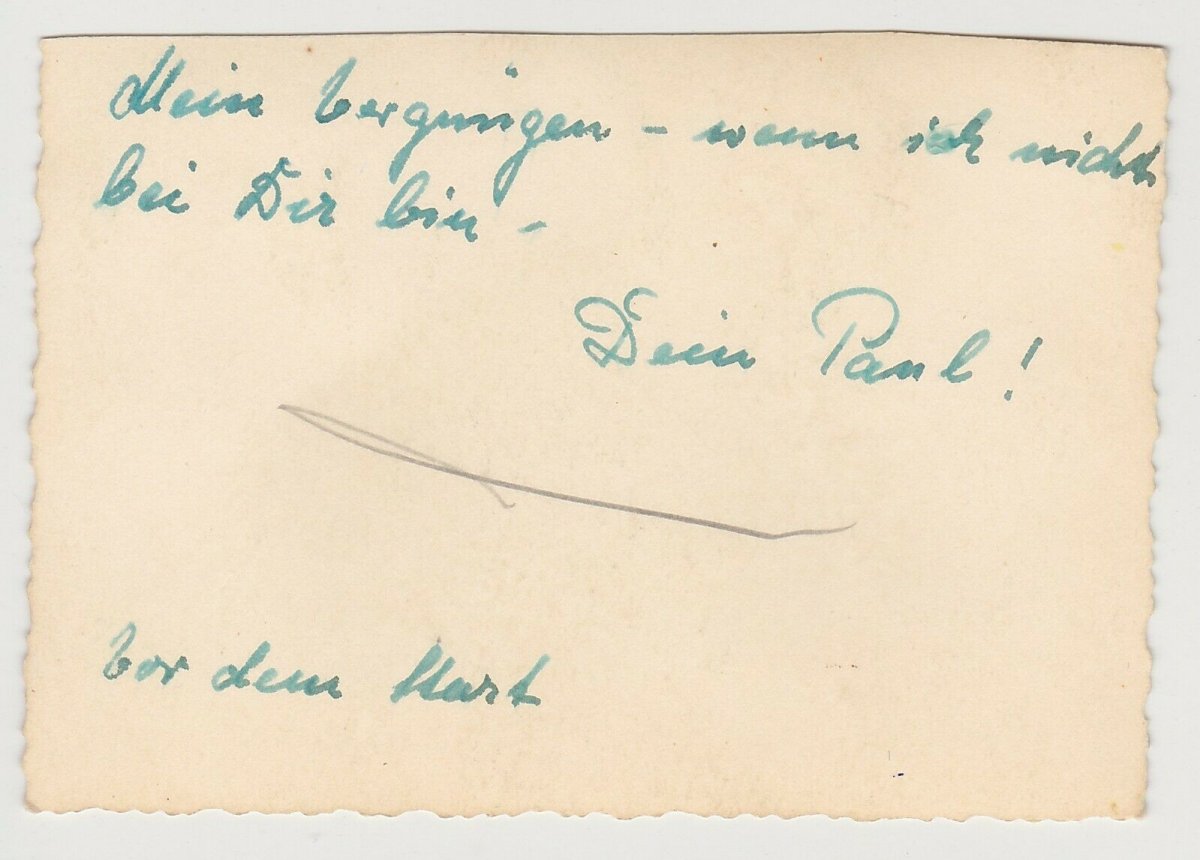 Mein Vergnügen - wenn ich nicht
bei Dir bin -
Dein Paul!
Vor dem Start